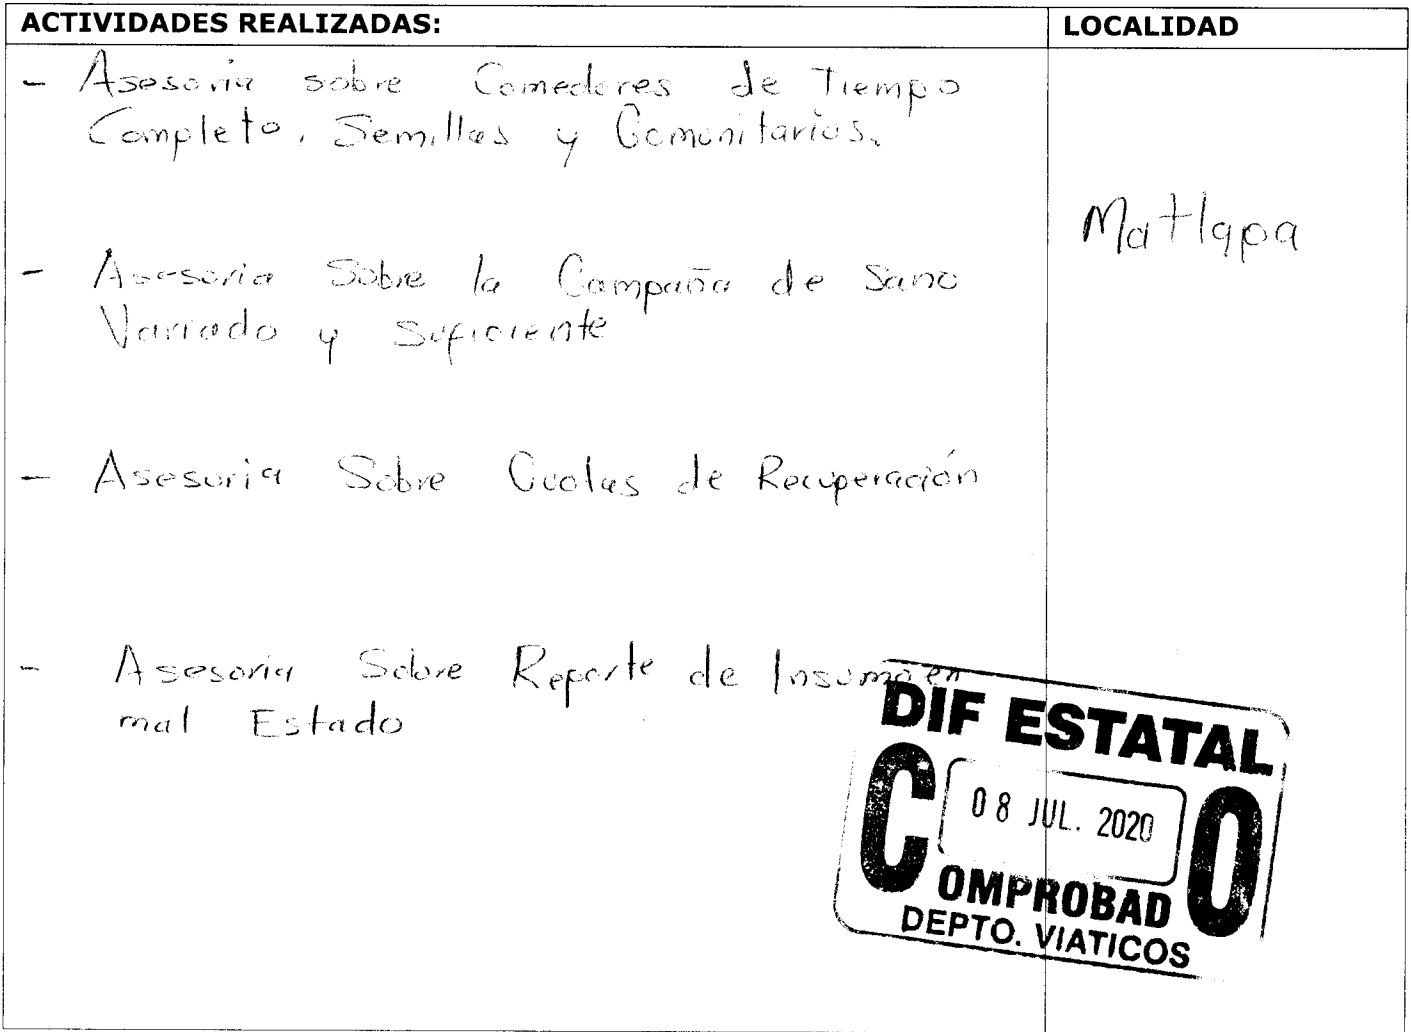 ACTIVIDADES REALIZADAS:
LOCALIDAD
- Asesoria sobre Comedores de Tiempo
Completo, Semillas y Comunitarios.
Matlapa
- Asesoria Sobre la Campaña de Sano
Variado y Suficiente
- Asesoria Sobre Cuotas de Recuperación
- Asesoria Sobre Reporte de Insumo en
mal Estado
DIF ESTATAL
08 JUL. 2020
COMPROBADO
DEPTO. VIATICOS